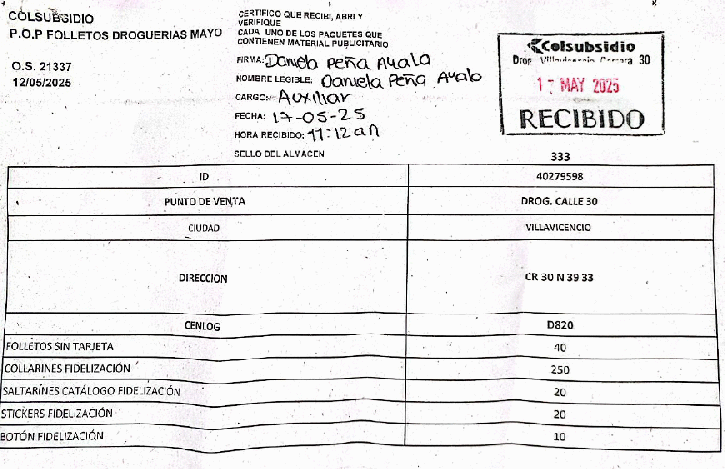 COLSUBSIDIO
P.O.P FOLLETOS DROGUERIAS MAYO
O.S. 21337
12/05/2025
CERTIFICO QUE RECIBI, ABRI Y
VERIFIQUE
CADA UNO DE LOS PAQUETES QUE
CONTIENEN MATERIAL PUBLICITARIO
FIRMA: Daniela Peña Ayala
NOMBRE LEGIBLE: Daniela Peña Ayala
CARGO: Auxiliar
FECHA: 17-05-25
HORA RECIBIDO: 11:12 am
SELLO DEL ALMACEN
Colsubsidio
Drog. Villavicencio Carrera 30
17 MAY 2025
RECIBIDO
333
ID 40279598
PUNTO DE VENTA DROG. CALLE 30
CIUDAD VILLAVICENCIO
DIRECCION CR 30 N 39 33
CENLOG D820
FOLLETOS SIN TARJETA 40
COLLARINES FIDELIZACIÓN 250
SALTARINES CATÁLOGO FIDELIZACIÓN 20
STICKERS FIDELIZACIÓN 20
BOTÓN FIDELIZACIÓN 10